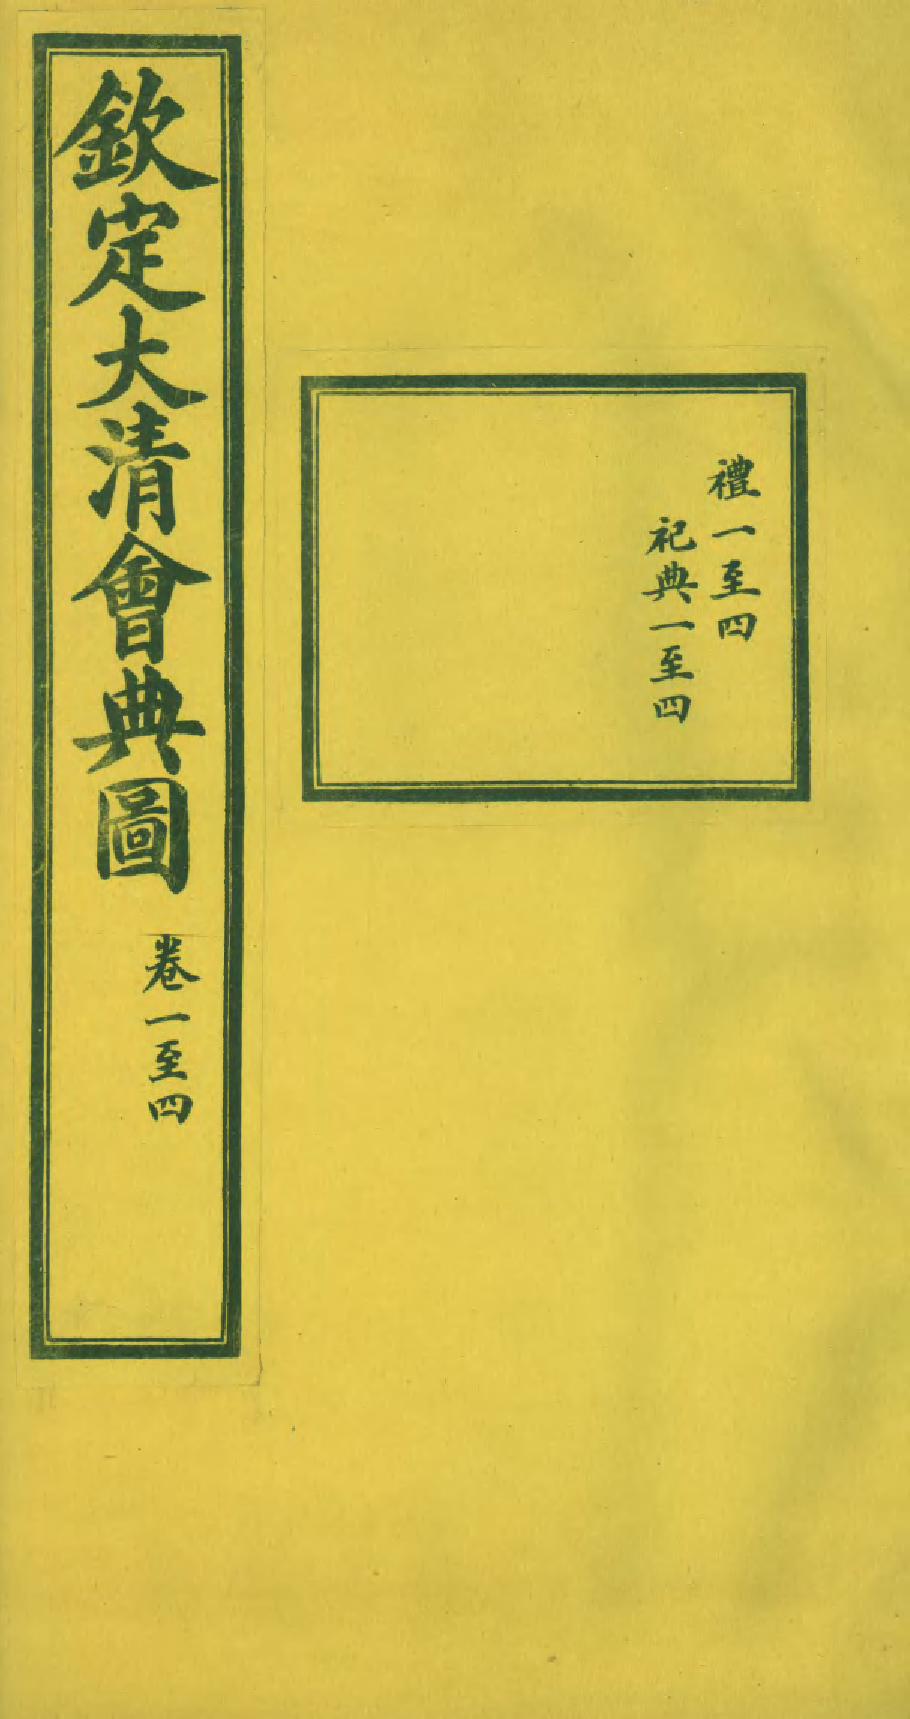 欽定大清會典圖
卷一至四
禮一至四
祀典一至四